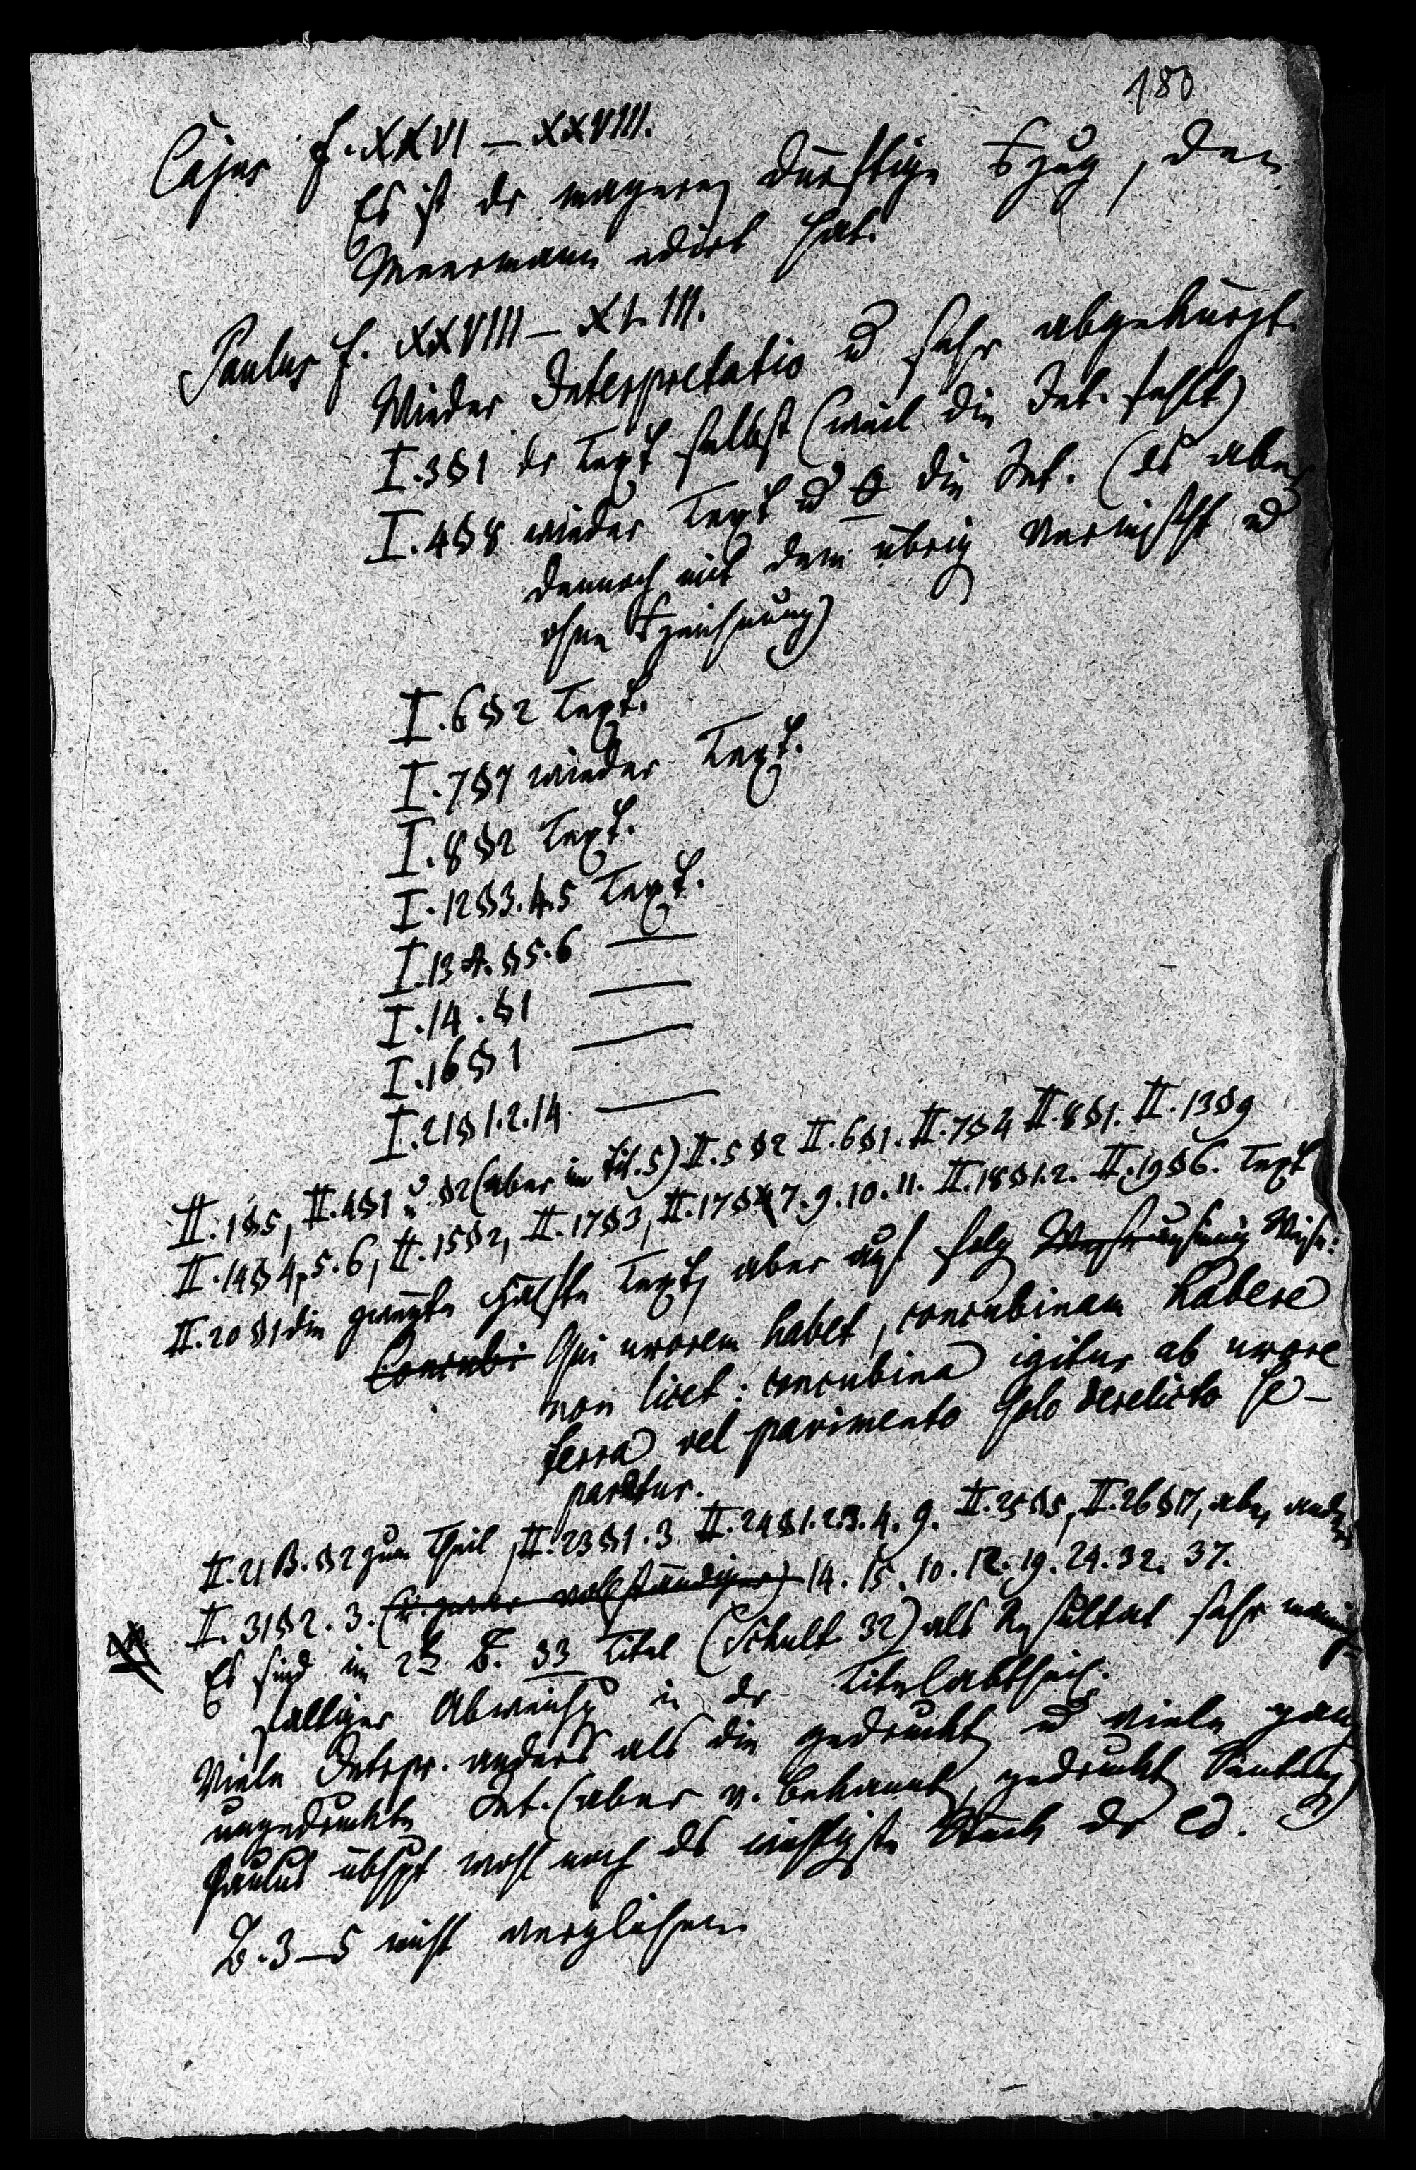 180
Cajus f. XXVI — XXVIII.
Es ist der magere, dürftige Auszug, den
Meermann edirt hat.
Paulus f. XXVIII — XLIII.
Wieder Interpretatio u sehr abgekürzt.
I. 3 § 1 der Text selbst (weil die Int. fehlt)
I. 4 § 8 wieder Text u die Int. (es aber
dennoch mit dem übrig vermischt u
ohne Bezeichnung)
I. 6 § 2 Text.
I. 7 § 7 wieder Text.
I. 8 § 2 Text.
I. 12 § 3. 4. 5 Text.
I. 13 A. § 5. 6 —
I. 14. § 1 —
I. 16 § 1 —
I. 21 § 1. 2. 14 —
II. 1 § 5, II. 4 § 1 u. § 2 (aber im Tit. 5) II. 5 § 2 II. 6 § 1. II. 7 § 4 II. 8 § 1. II. 13 § 9
II. 14 § 4, 5. 6, II. 15 § 2, II. 17 § 3, II. 17 § 7. 9. 10. 11. II. 18 § 1. 2. II. 19 § 6. Text
II. 20 § 1 die zweyte Hälfte Text, aber auf folg Weise:
Concubi Qui uxorem habet, concubinam habere
non licet: concubina igitur ab uxore
terra vel pavimento solo derelicto se-
paratur.
II. 21 B. § 2 zum Theil, II. 23 § 1. 3 II. 24 § 1. 2. 3. 4. 9. II. 25 § 5, II. 26 § 17, aber anders
II. 31 § 2. 3. 14. 15. 10. 12. 19. 24. 32. 37.
Es sind im 2t B. 33 Titel (Schult. 32) als Resultat sehr mannig-
faltiger Abweichg in der Titelabtheil.
Viele Interpr. anders als die gedruckt u viele ganz
ungedruckte Int. (aber v. bekannt, gedruckt
Paulus übhpt wohl noch das wichtigste Stück der Ed.
B. 3 — 5 nicht verglichen